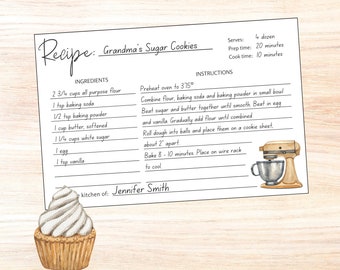 Recipe: Grandma's Sugar Cookies
Serves: 4 dozen
Prep time: 20 minutes
Cook time: 10 minutes
INGREDIENTS
2 3/4 cups all purpose flour
1 tsp baking soda
1/2 tsp baking powder
1 cup butter, softened
1 1/2 cups white sugar
1 egg
1 tsp vanilla
INSTRUCTIONS
Preheat oven to 375°
Combine flour, baking soda and baking powder in small bowl.
Beat sugar and butter together until smooth. Beat in egg
and vanilla. Gradually add flour until combined.
Roll dough into balls and place them on a cookie sheet.
about 2" apart.
Bake 8 - 10 minutes. Place on wire rack
to cool.
kitchen of: Jennifer Smith